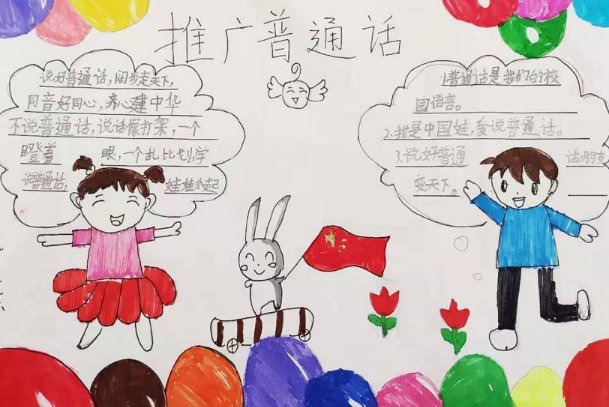 推广普通话
说好普通话，阔步走天下，
同音好同心，齐心建中华
不说普通话，说话像打架，一个
瞪着 眼，一个乱比划学
普通话 娃娃 起
1.普通话是我们的校
园语言。
2.我是中国娃，爱说普通话。
3.说好普通 话，朋友
变天下。